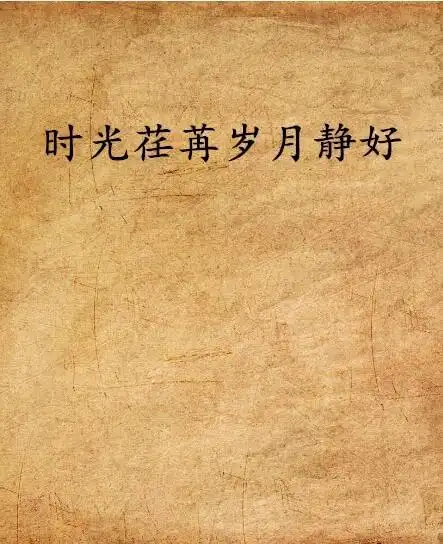 时光荏苒岁月静好